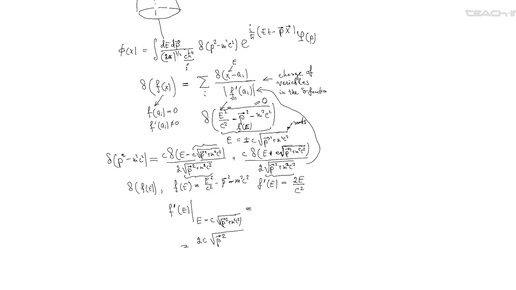 TEACH-I
ϕ(x) = ∫ dE dp⃗ / (2π)^{4/2} cħ⁴ δ(p² − m²c²) e^{i/ħ (Et − p⃗ x⃗)} φ(p)
δ(f(x)) = Σ_i δ(x − a_i) / |f'(a_i)| ← change of
variables
in the δ-function
f(a_i) = 0
f'(a_i) ≠ 0
δ(E²/c² − p⃗² − m²c²) = 0
f(E)
E = ± c √(p⃗² + m²c²) roots
δ(p² − m²c²) = c δ(E − c√(p⃗² + m²c²)) / 2√(p⃗² + m²c²) + c δ(E + c√(p⃗² + m²c²)) / 2√(p⃗² + m²c²)
δ(f(E)), f(E) = E²/c² − p⃗² − m²c² f'(E) = 2E/c²
f'(E)|_{E = c√(p⃗² + m²c²)} =
= 2c √p⃗²